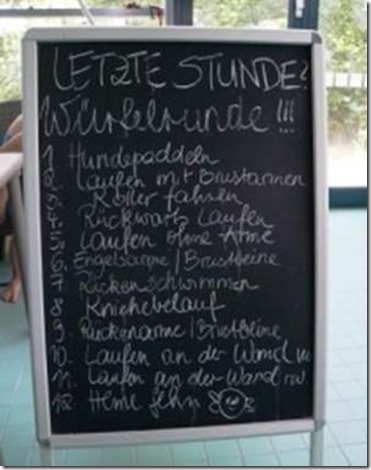 LETZTE STUNDE?
Würfelrunde !!!
1 Hundepaddeln
2. Laufen mit Brustarmen
3. Roller fahren
4. Rückwärts Laufen
5. Laufen ohne Arme
6. Engelsarme / Brustbeine
7 Rückenschwimmen
8 Kniehebelauf
9. Rückenarme / Brustbeine
10. Laufen an der Wand
11. Laufen an der Wand rw
12.